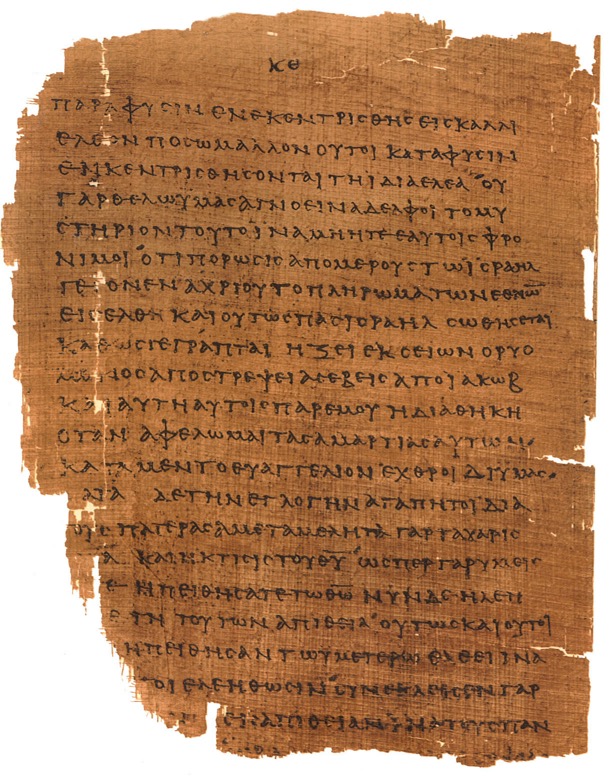 ΚΘ
ΠΑΡΑΦΥϹΙΝ ΕΝΕΚΕΝΤΡΙϹΘΗϹ ΕΙϹΚΑΛΛΙ
ΕΛΕΟΝ ΠΟϹΩΜΑΛΛΟΝ ΟΥΤΟΙ ΚΑΤΑΦΥϹΙΝ
ΕΝΚΕΝΤΡΙϹΘΗϹΟΝΤΑΙ ΤΗΙΔΙΑΕΛΕΑ ΟΥ
ΓΑΡΘΕΛΩΥΜΑϹΑΓΝΟΕΙΝΑΔΕΛΦΟΙ ΤΟΜΥ
ϹΤΗΡΙΟΝΤΟΥΤΟΙΝΑΜΗΗΤΕΕΑΥΤΟΙϹ ΦΡΟ
ΝΙΜΟΙ ΟΤΙΠΟΡΩϹΙϹ ΑΠΟΜΕΡΟΥϹ ΤΩΙϹΡΑΗΛ
ΓΕΓΟΝΕΝ ΑΧΡΙΟΥΤΟΠΛΗΡΩΜΑΤΩΝΕΘΝΩ̅
ΕΙϹΕΛΘΗ ΚΑΙΟΥΤΩϹΠΑϹΙϹΡΑΗΛ ϹΩΘΗϹΕΤΑΙ
ΚΑΘΩϹΓΕΓΡΑΠΤΑΙ ΗΞΕΙ ΕΚ ϹΕΙΩΝ ΟΡΥΟ
ΜΕΝΟϹΑΠΟϹΤΡΕΨΕΙΑϹΕΒΕΙϹ ΑΠΟΪΑΚΩΒ
ΚΑΙΑΥΤΗΑΥΤΟΙϹ ΠΑΡΕΜΟΥ ΗΔΙΑΘΗΚΗ
ΟΤΑΝ ΑΦΕΛΩΜΑΙΤΑϹΑΜΑΡΤΙΑϹΑΥΤΩΝ
ΚΑΤΑΜΕΝΤΟΕΥΑΓΓΕΛΙΟΝ ΕΧΘΡΟΙ ΔΙΥΜΑϹ
ΔΕΤΗΝΕΓΛΟΓΗΝ ΑΓΑΠΗΤΟΙ ΔΙΑ
ΠΑΤΕΡΑϹ ΑΜΕΤΑΜΕΛΗΤΑ ΓΑΡΤΑΧΑΡΙϹ
ΚΑΙΗΚΤΙϹΙϹΤΟΥΘ̅Υ̅ ΩϹΠΕΡΓΑΡΥΜΕΙϹ
ΗΠΕΙΘΗϹΑΤΕΤΩΘ̅Ω̅ ΝΥΝΔΕ ΗΛΕΗ
ΤΗ ΤΟΥΤΩΝ ΑΠΙΘΕΙΑ ΟΥΤΩϹΚΑΙΟΥΤΟΙ
ΗΠΕΙΘΗϹΑΝ ΤΩΥΜΕΤΕΡΩ ΕΛΕΕΙ ΙΝΑ
ΕΛΕΗΘΩϹΙΝ ϹΥΝΕΚΛΕΙϹΕΝΓΑΡ
ΑΠΙΘΕΙΑΝ ΙΝΑΤΟΥϹΠΑΝ